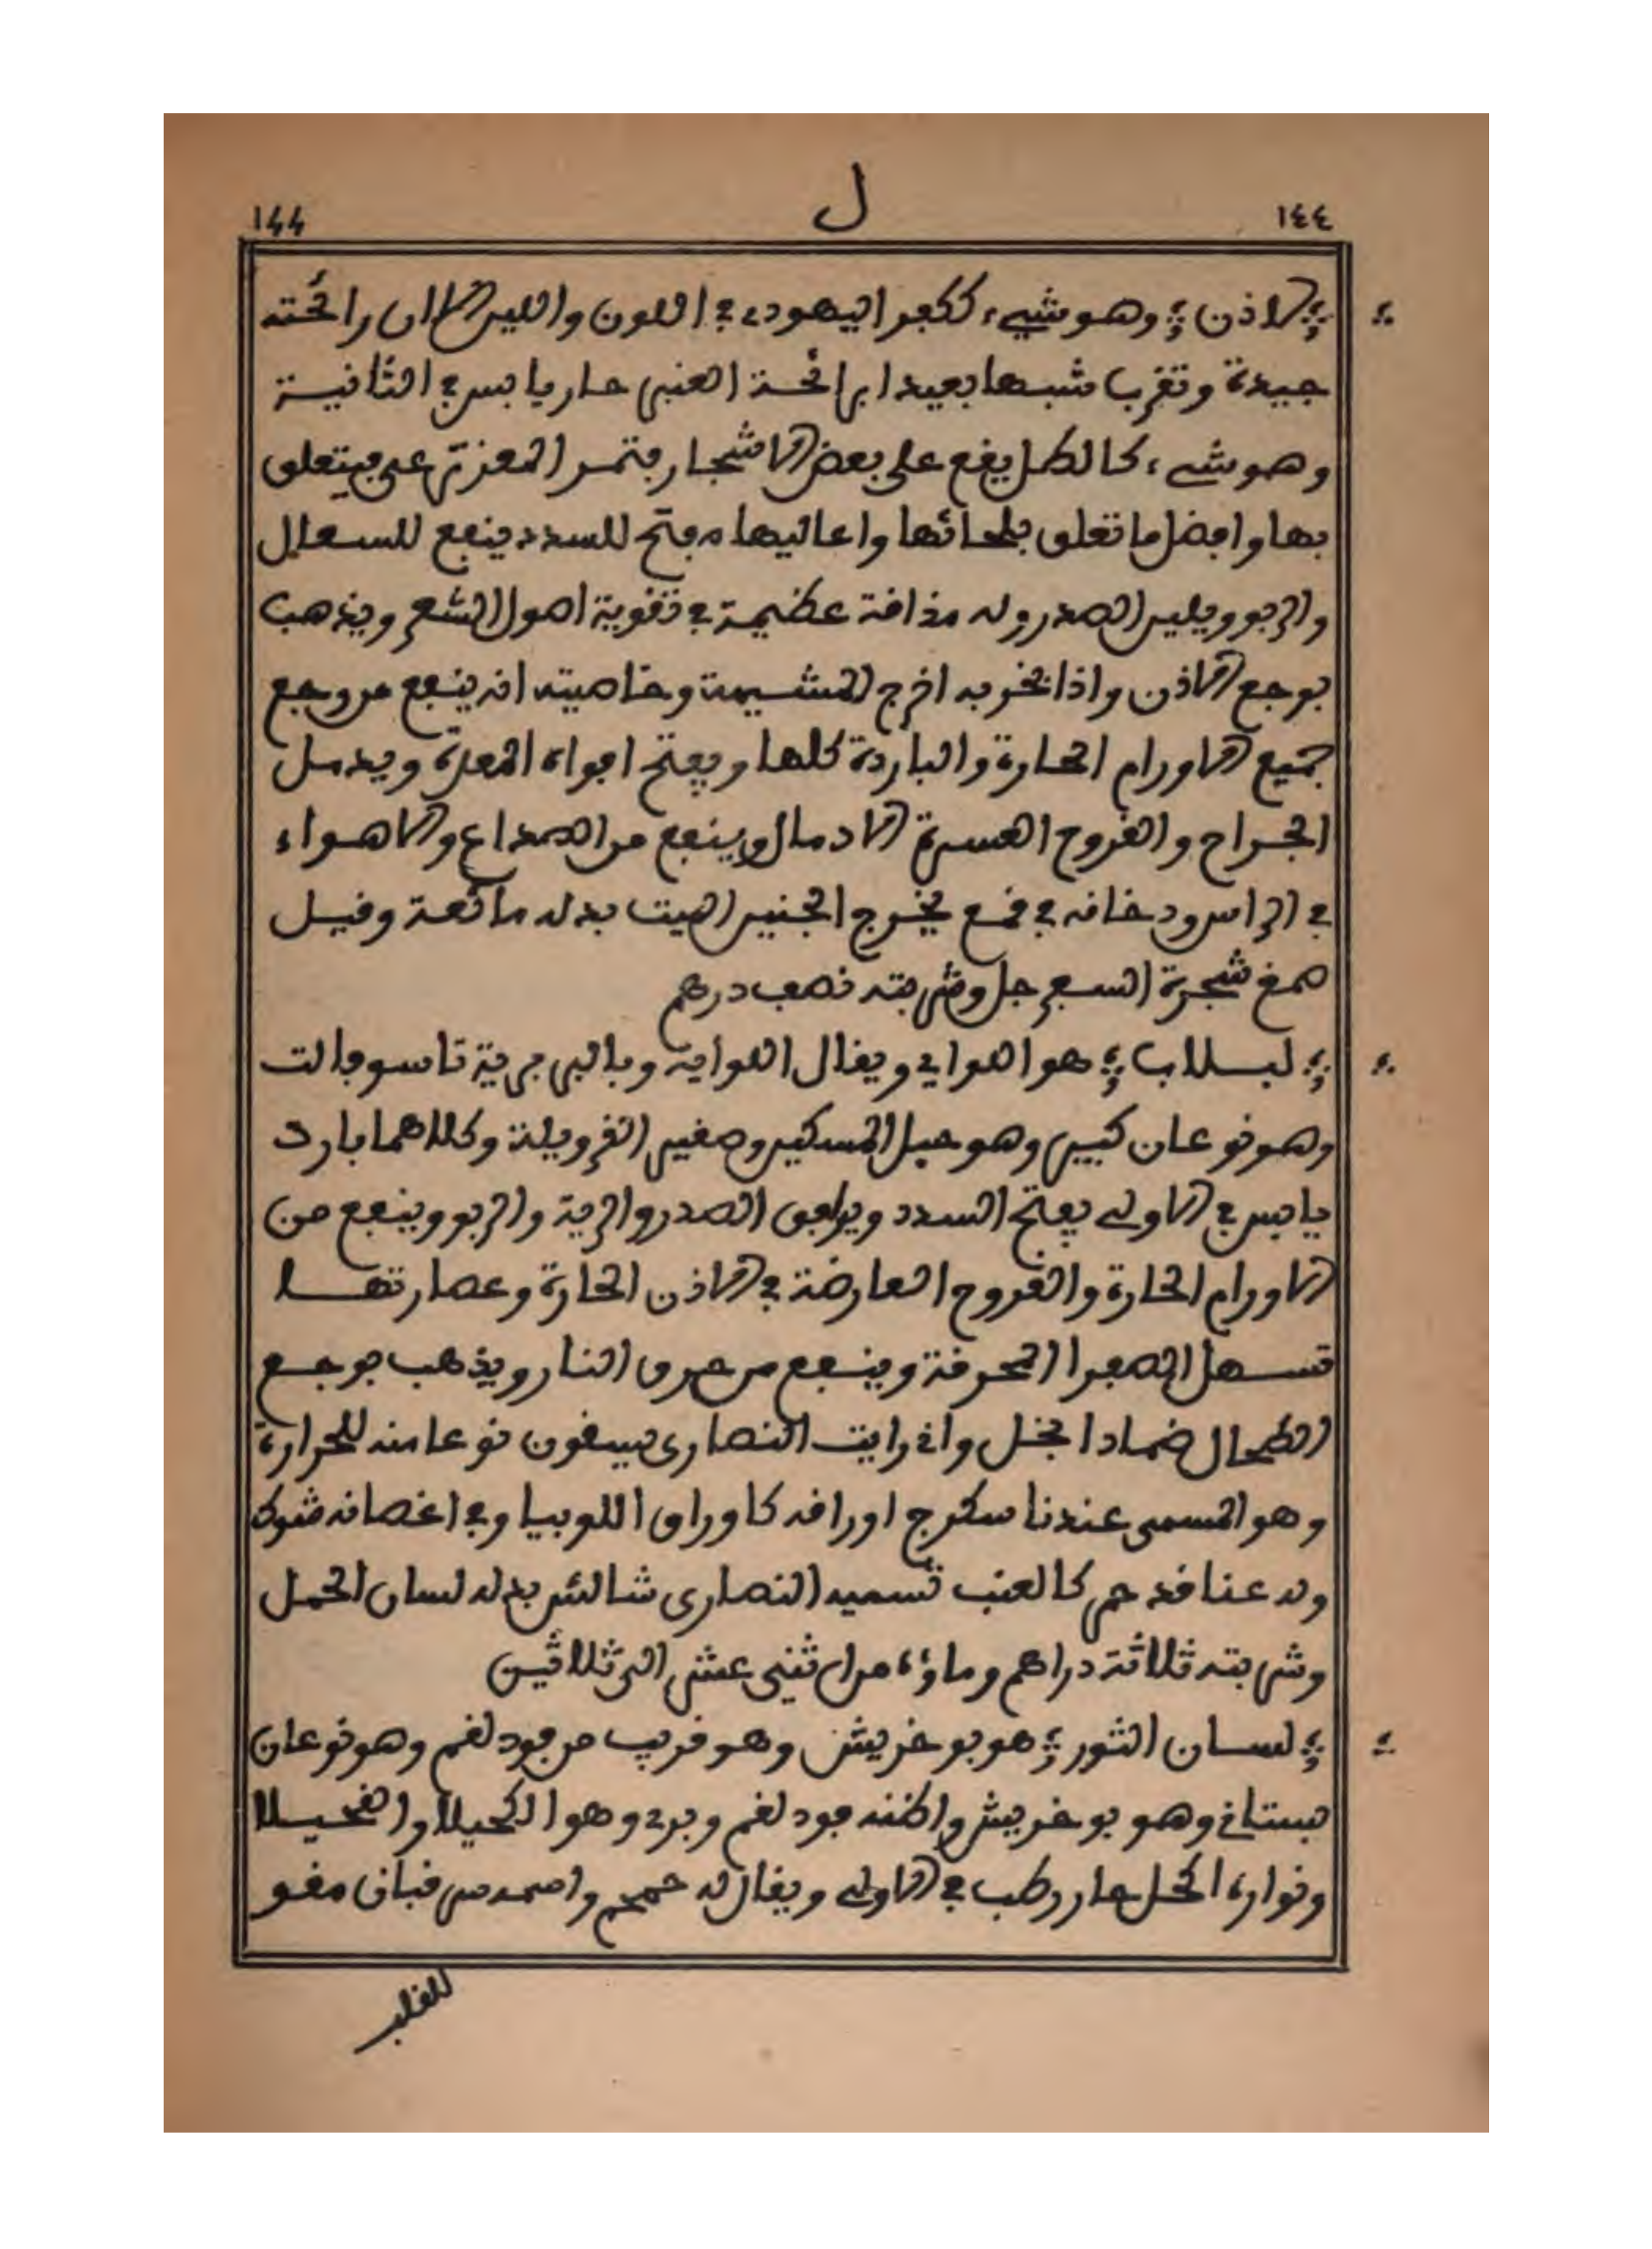 ١٤٤ ل 144
لاذن وهو شيء ككفر اليهودي في اللون واللين الا ان رائحته
جيدة وتقرب شبها بعيدا برائحة العنبر حار يابس في الثانية
وهو شيء كالطل يقع على بعض الاشجار فتمر المعز ترعى فيتعلق
بها وافضل ما تعلق بلحائها واعاليها مفتح للسدد ينفع للسعال
والربو ويلين الصدر وله مذاقة عظيمة في تقوية اصول الشعر ويذهب
بوجع الاذن واذا بخر به اخرج المشيمة وخاصيته انه ينفع من وجع
جميع الاورام الحارة والباردة كلها ويفتح افواه المعدة ويدمل
الجراح والقروح العسرة الادمال وينفع من الصداع والاهواء
في الراس ودخانه في قمع يخرج الجنين الميت بدله مائعة وقيل
صمغ شجرة السفرجل وشربته نصف درهم
لبلاب هو اللواي ويقال اللواية وبالبربرية تاسوفالت
وهو نوعان كبير وهو حبل المسكين وصغير القريولة وكلاهما بارد
يابس في الاولى يفتح السدد ويوافق الصدر والرية والربو وينفع من
الاورام الحارة والقروح العارضة في الاذن الحارة وعصارتها
تسهل الصفرا المحرقة وينفع من حرق النار ويذهب بوجع
الطحال ضمادا بخل واني رايت النصارى يسقون نوعا منه للحرارة
وهو المسمى عندنا سكرج اوراقه كاوراق اللوبيا وفي اغصانه شوك
وله عناقد حمر كالعنب تسميه النصارى شالش بدله لسان الحمل
وشربته ثلاثة دراهم وماؤه من اثنى عشر الى ثلاثين
لسان الثور هو بو خريش وهو قريب من فود لغم وهو نوعان
بستاني وهو بو خريش واظنه فود لغم وبري وهو الكحيلا والفحيلا
ونواره اكحل حار رطب في الاولى ويقال له حمحم واصمدس فبانى مقو
للقلب